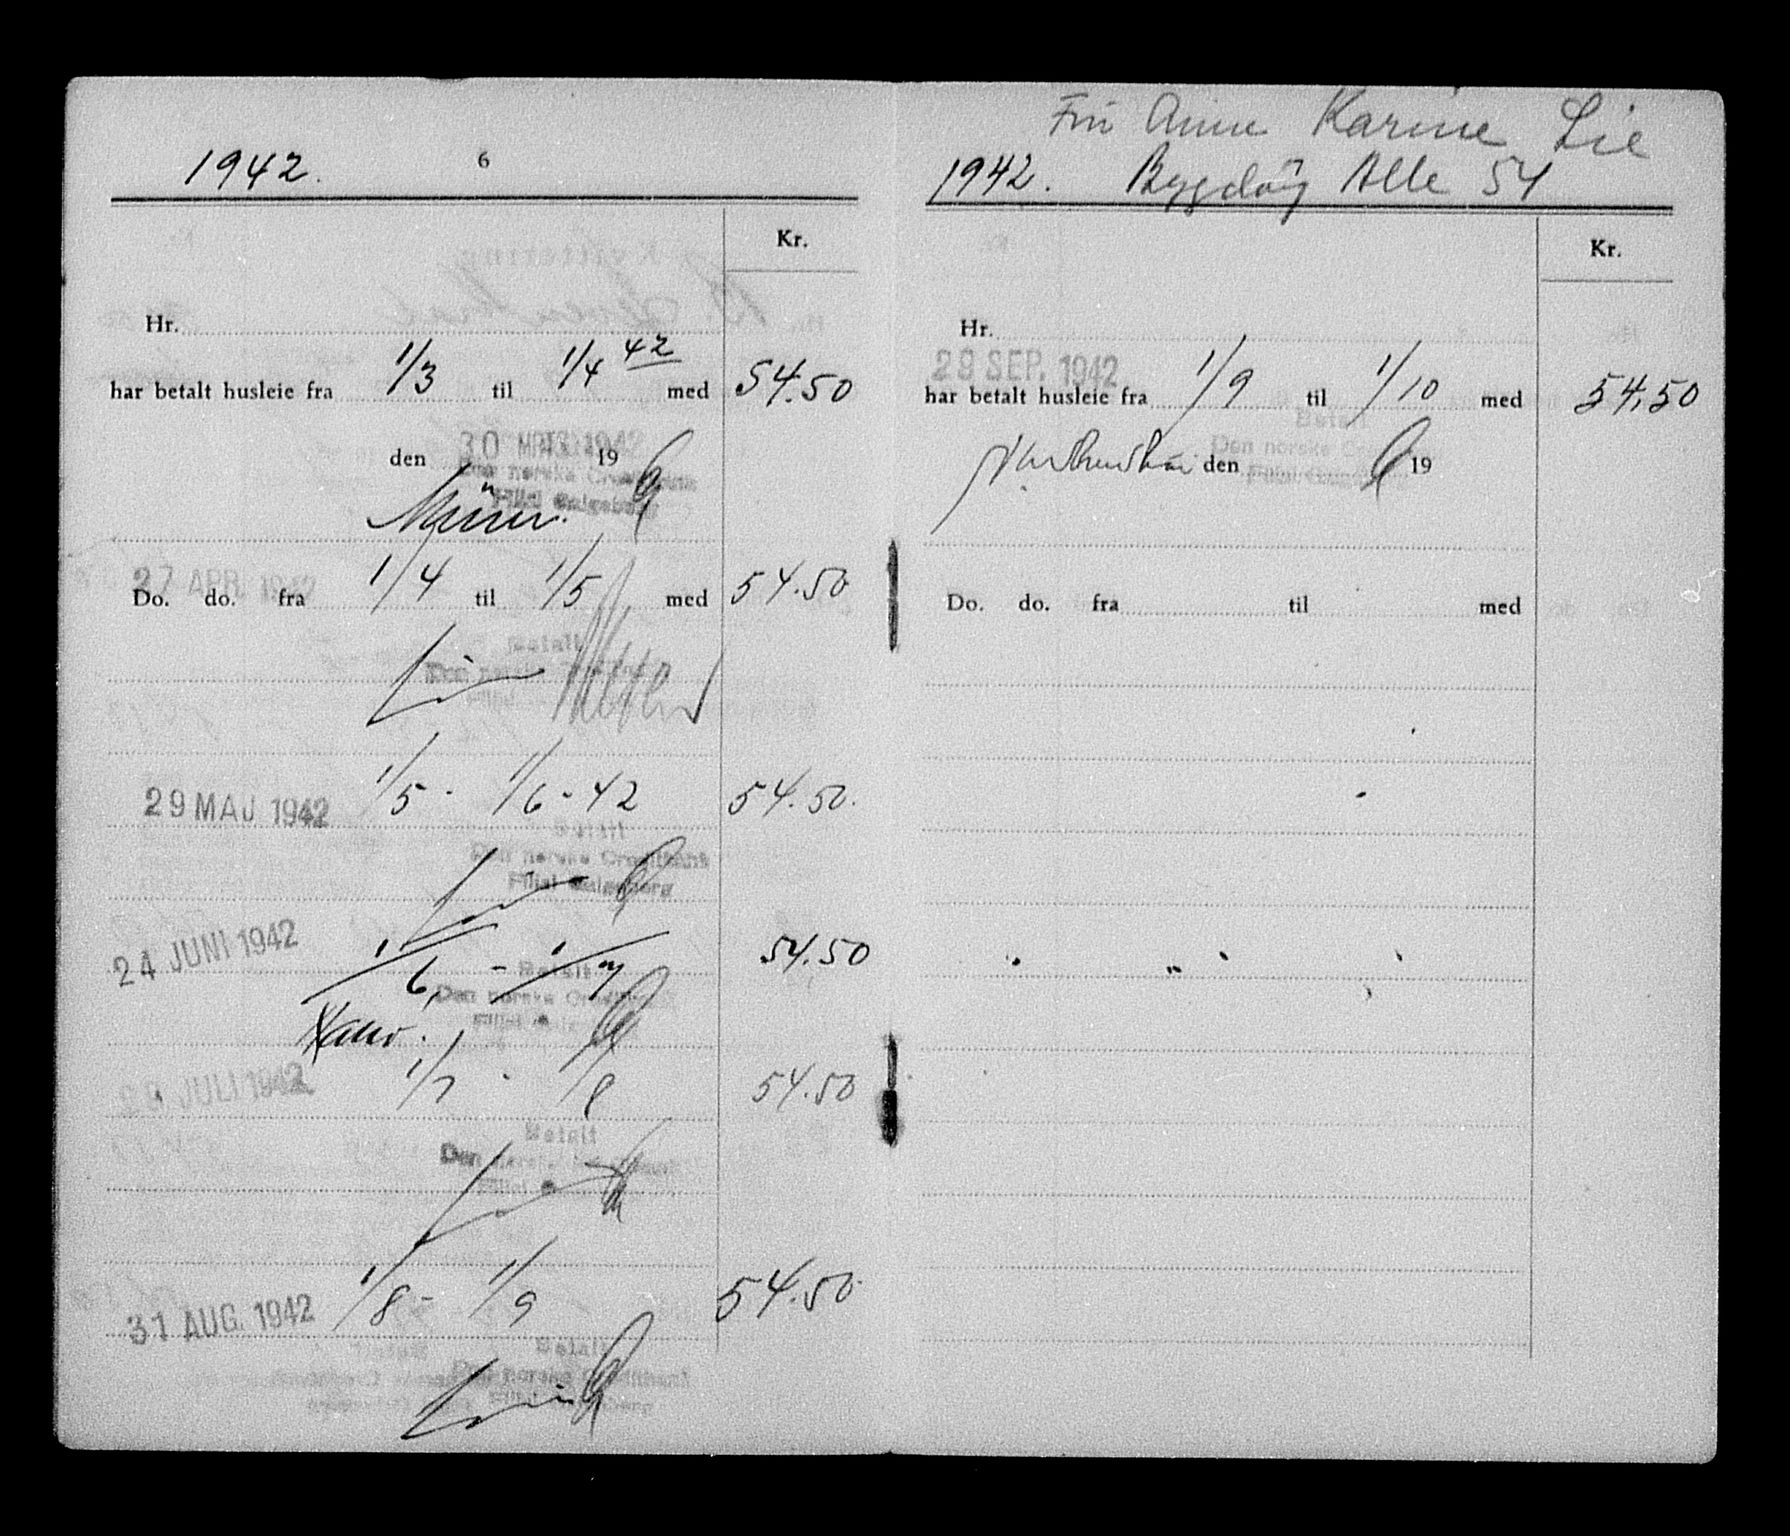 1942. 6
Kr.
Hr.
har betalt husleie fra 1/3 til 1/4 42 med 54.50
30 MRTS 1942
den 19
Den norske Creditbank
Filial
27 APR. 1942
Do. do. fra 1/4 til 1/5 med 54.50
Betalt
Den norske
Filial
29 MAJ 1942 1/5 - 1/6 - 42 54.50.
Betalt
Den norske Creditbank
Filial
24 JUNI 1942 1/6 - 1/7 54.50
Betalt
Den norske
Filial
JULI 1942 1/7 - 1/8 54.50
Betalt
Den norske
Filial
31 AUG. 1942 1/8 - 1/9 54.50
Betalt
Den norske Creditbank
Filial
Fru Anne Karine Lie
1942. Bygdöy Alle 54
Kr.
Hr.
29 SEP. 1942
har betalt husleie fra 1/9 til 1/10 med 54,50
Betalt
Den norske
den 19
Filial
Do. do. fra til med